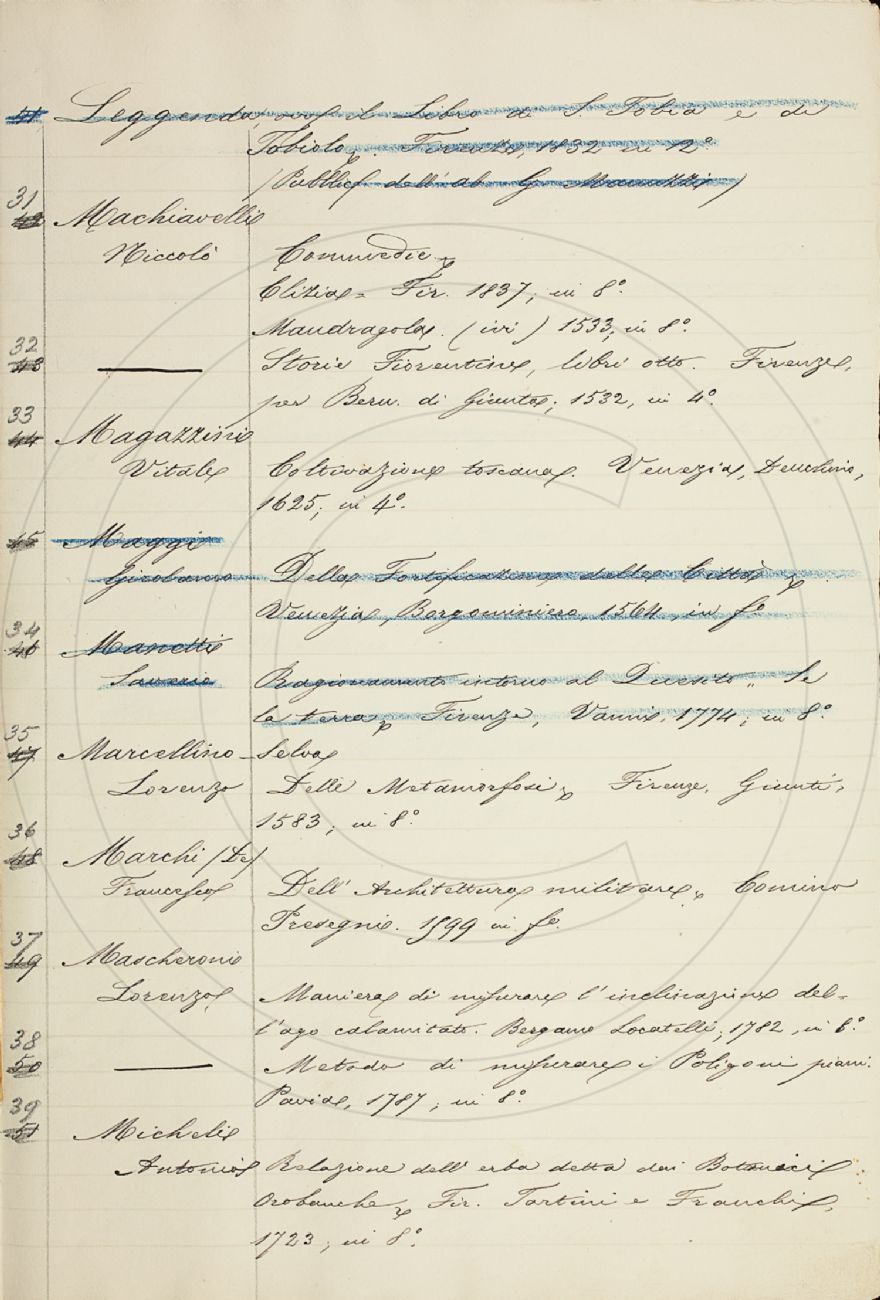 41 Leggenda, ossia il Libro di S. Tobia e di
Tobiolo. Firenze, 1832 in 12º
(Pubblic. dell'ab. G. Manuzzi)
31
42 Machiavelli
Niccolò Commedie
Clizia = Fir. 1837, in 8º.
Mandragola. (ivi) 1533, in 8º.
32
43 —— Storie Fiorentine, libri otto. Firenze,
per Bern. di Giunta; 1532, in 4º.
33
44 Magazzini
Vitale Coltivazione toscana. Venezia, Deuchino,
1625, in 4º.
45 Maggi
Girolamo Della Fortificazione delle Città
Venezia, Borgominiero, 1564, in fº
34
46 Manetti
Saverio Ragionamento intorno al Quesito „ Se
la terra Firenze, Vanni, 1774; in 8º.
35
47 Marcellino Selva
Lorenzo Delle Metamorfosi, Firenze, Giunti,
1583, in 8º
36
48 Marchi (De)
Francesco Dell' Architettura militare, Comino
Presegni. 1599 in fº.
37
49 Mascheroni
Lorenzo, Maniera di misurare l'inclinazione del-
l'ago calamitato. Bergamo Locatelli, 1782, in 8º.
38
50 —— Metodo di misurare i Poligoni piani.
Pavia, 1787, in 8º.
39
51 Micheli
Antonio Relazione dell' erba detta dai Botanici
Orobanche, Fir. Tartini e Franchi,
1723, in 8º.